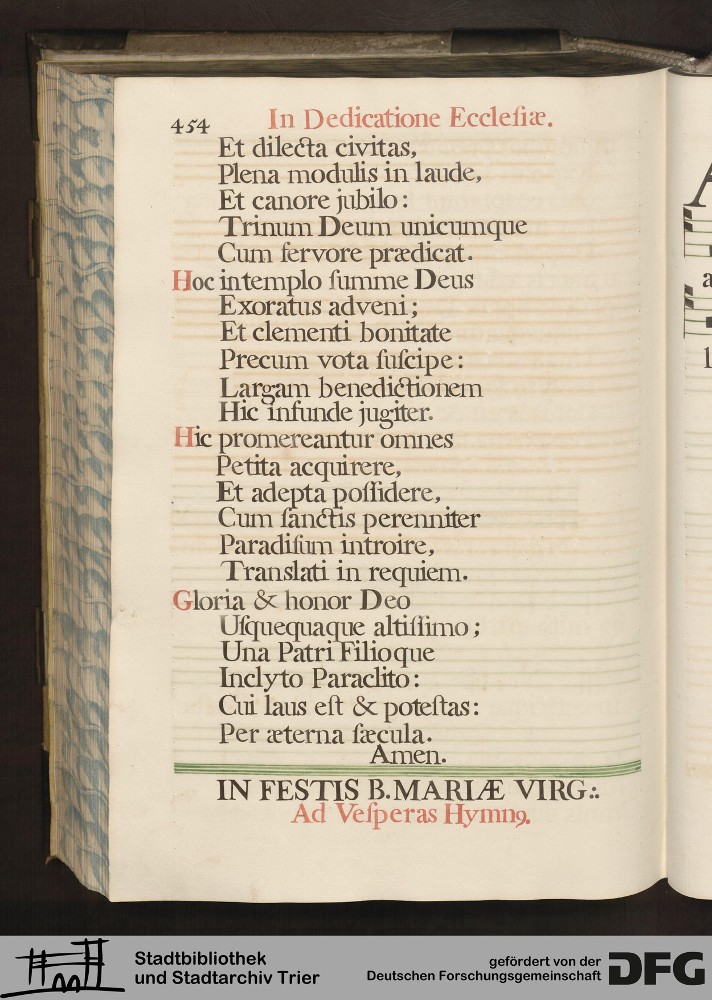 454 In Dedicatione Eccleſiæ.
Et dilecta civitas,
Plena modulis in laude,
Et canore jubilo:
Trinum Deum unicumque
Cum fervore prædicat.
Hoc in templo ſumme Deus
Exoratus adveni;
Et clementi bonitate
Precum vota ſuſcipe:
Largam benedictionem
Hic infunde jugiter.
Hic promereantur omnes
Petita acquirere,
Et adepta poſſidere,
Cum ſanctis perenniter
Paradiſum introire,
Translati in requiem.
Gloria & honor Deo
Uſquequaque altiſſimo;
Una Patri Filioque
Inclyto Paraclito:
Cui laus eſt & poteſtas:
Per æterna ſæcula.
Amen.
IN FESTIS B. MARIÆ VIRG:.
Ad Veſperas Hymnꝯ.
Stadtbibliothek
und Stadtarchiv Trier
gefördert von der
Deutschen Forschungsgemeinschaft
DFG